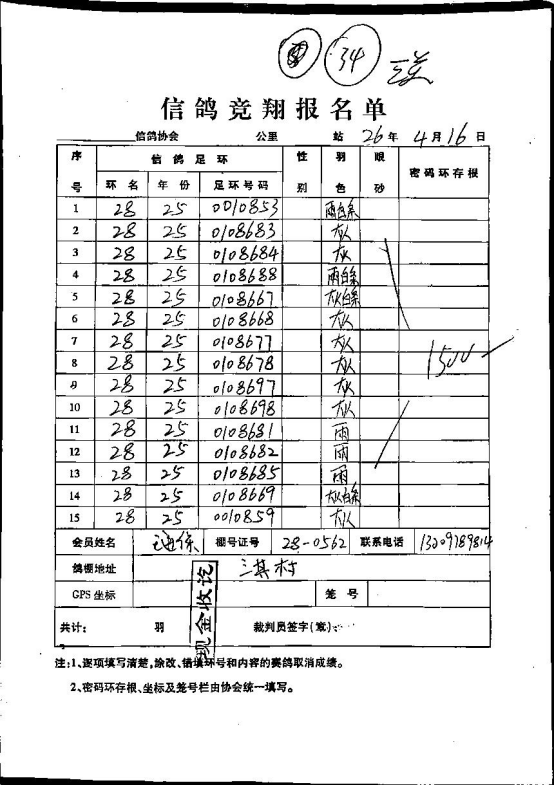 34
信鸽竞翔报名单
信鸽协会 公里 站 26年 4月16日
序号 信鸽足环 性别 羽色 眼砂 密码环存根
环名 年份 足环号码
1 28 25 0010853 雨白条
2 28 25 0108683 灰
3 28 25 0108684 灰
4 28 25 0108688 雨白条
5 28 25 0108667 灰白条
6 28 25 0108668 灰
7 28 25 0108677 灰
8 28 25 0108678 灰
9 28 25 0108697 灰
10 28 25 0108698 灰
11 28 25 0108681 雨
12 28 25 0108682 雨
13 28 25 0108685 雨
14 28 25 0108669 灰白条
15 28 25 0010859 灰
1500
会员姓名 棚号证号 28-0562 联系电话 13009189814
鸽棚地址 三其村
GPS坐标 笼号
现金收讫
共计: 羽 裁判员签字(章):
注:1、逐项填写清楚,涂改、错填环号和内容的赛鸽取消成绩。
2、密码环存根、坐标及笼号栏由协会统一填写。